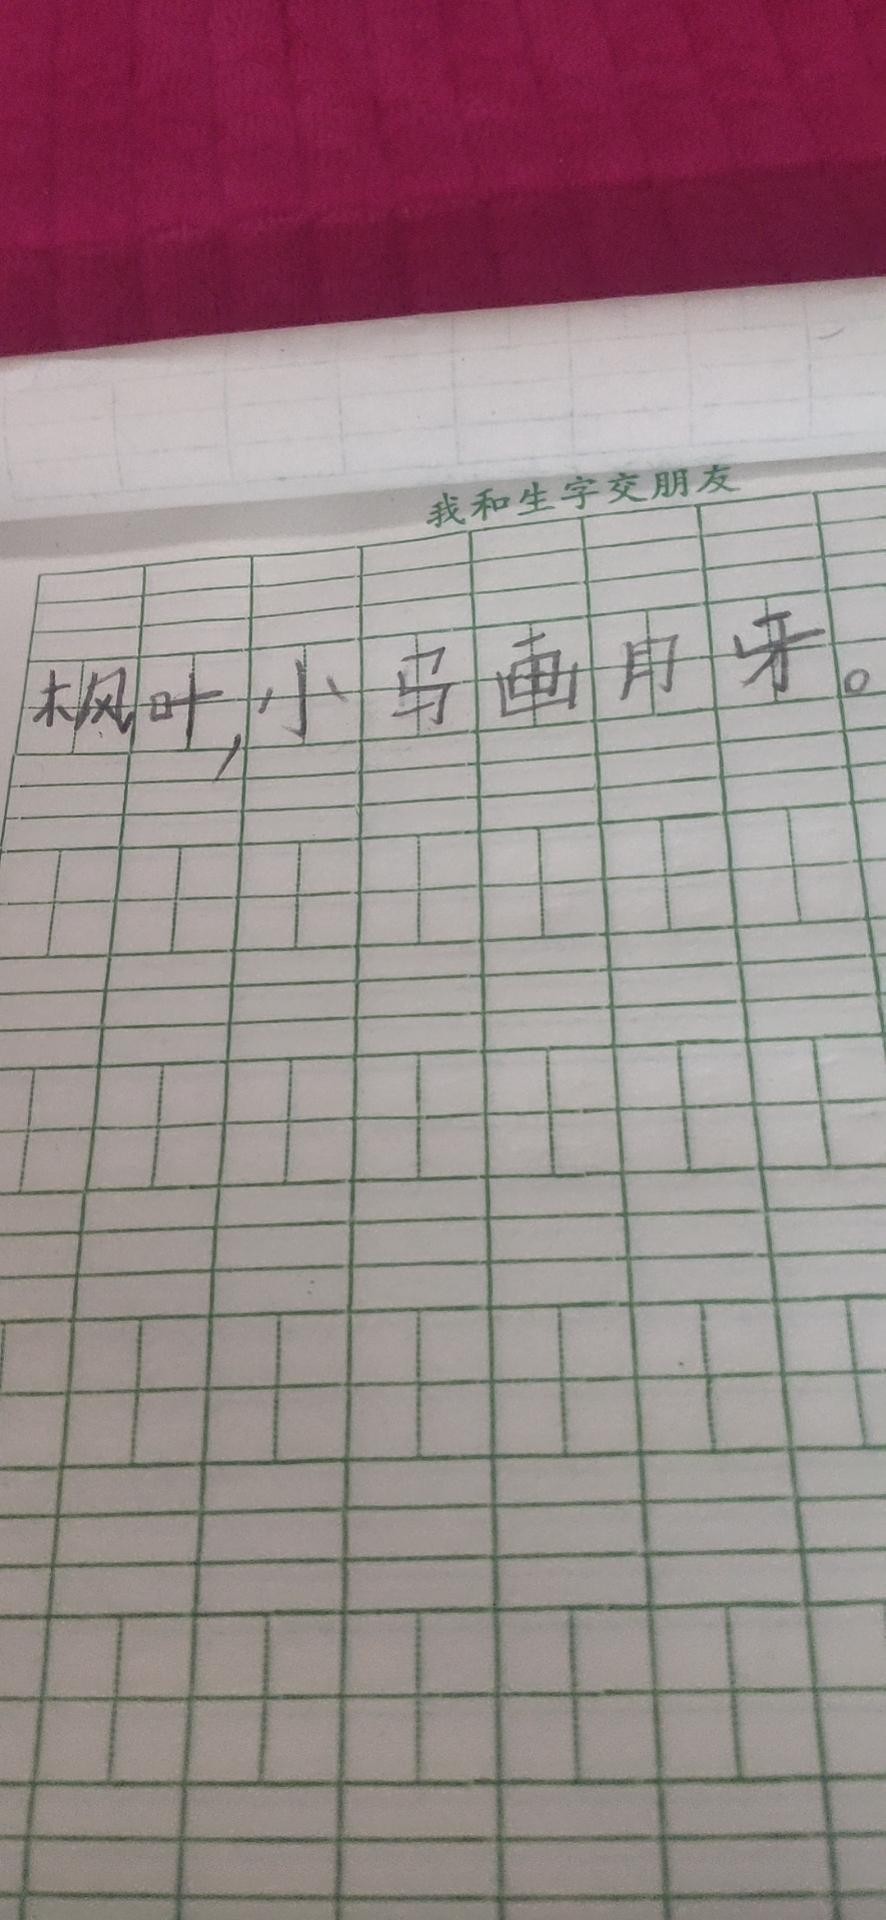 我和生字交朋友
枫叶,小马画月牙。